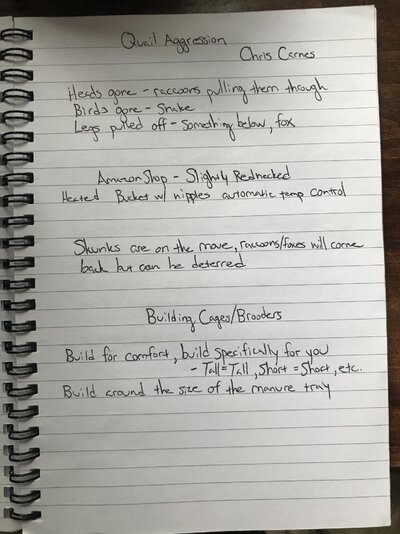 Quail Aggression
Chris Carnes
Heads gone - raccoons pulling them through
Birds gone - Snake
Legs pulled off - Something below, fox
Amazon Shop - Slightly Rednecked
Heated Bucket w/ nipples automatic temp control
Skunks are on the move, raccoons/foxes will come
back but can be deterred
Building Cages/Brooders
Build for comfort, build specifically for you
- Tall=Tall, Short=Short, etc.
Build around the size of the manure tray